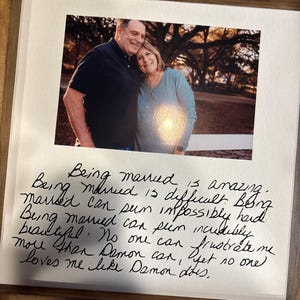 Being married is amazing.
Being married is difficult. Being
married can seem impossibly hard.
Being married can seem incredibly
beautiful. No one can frustrate me
more than Damon can, yet no one
loves me like Damon does.